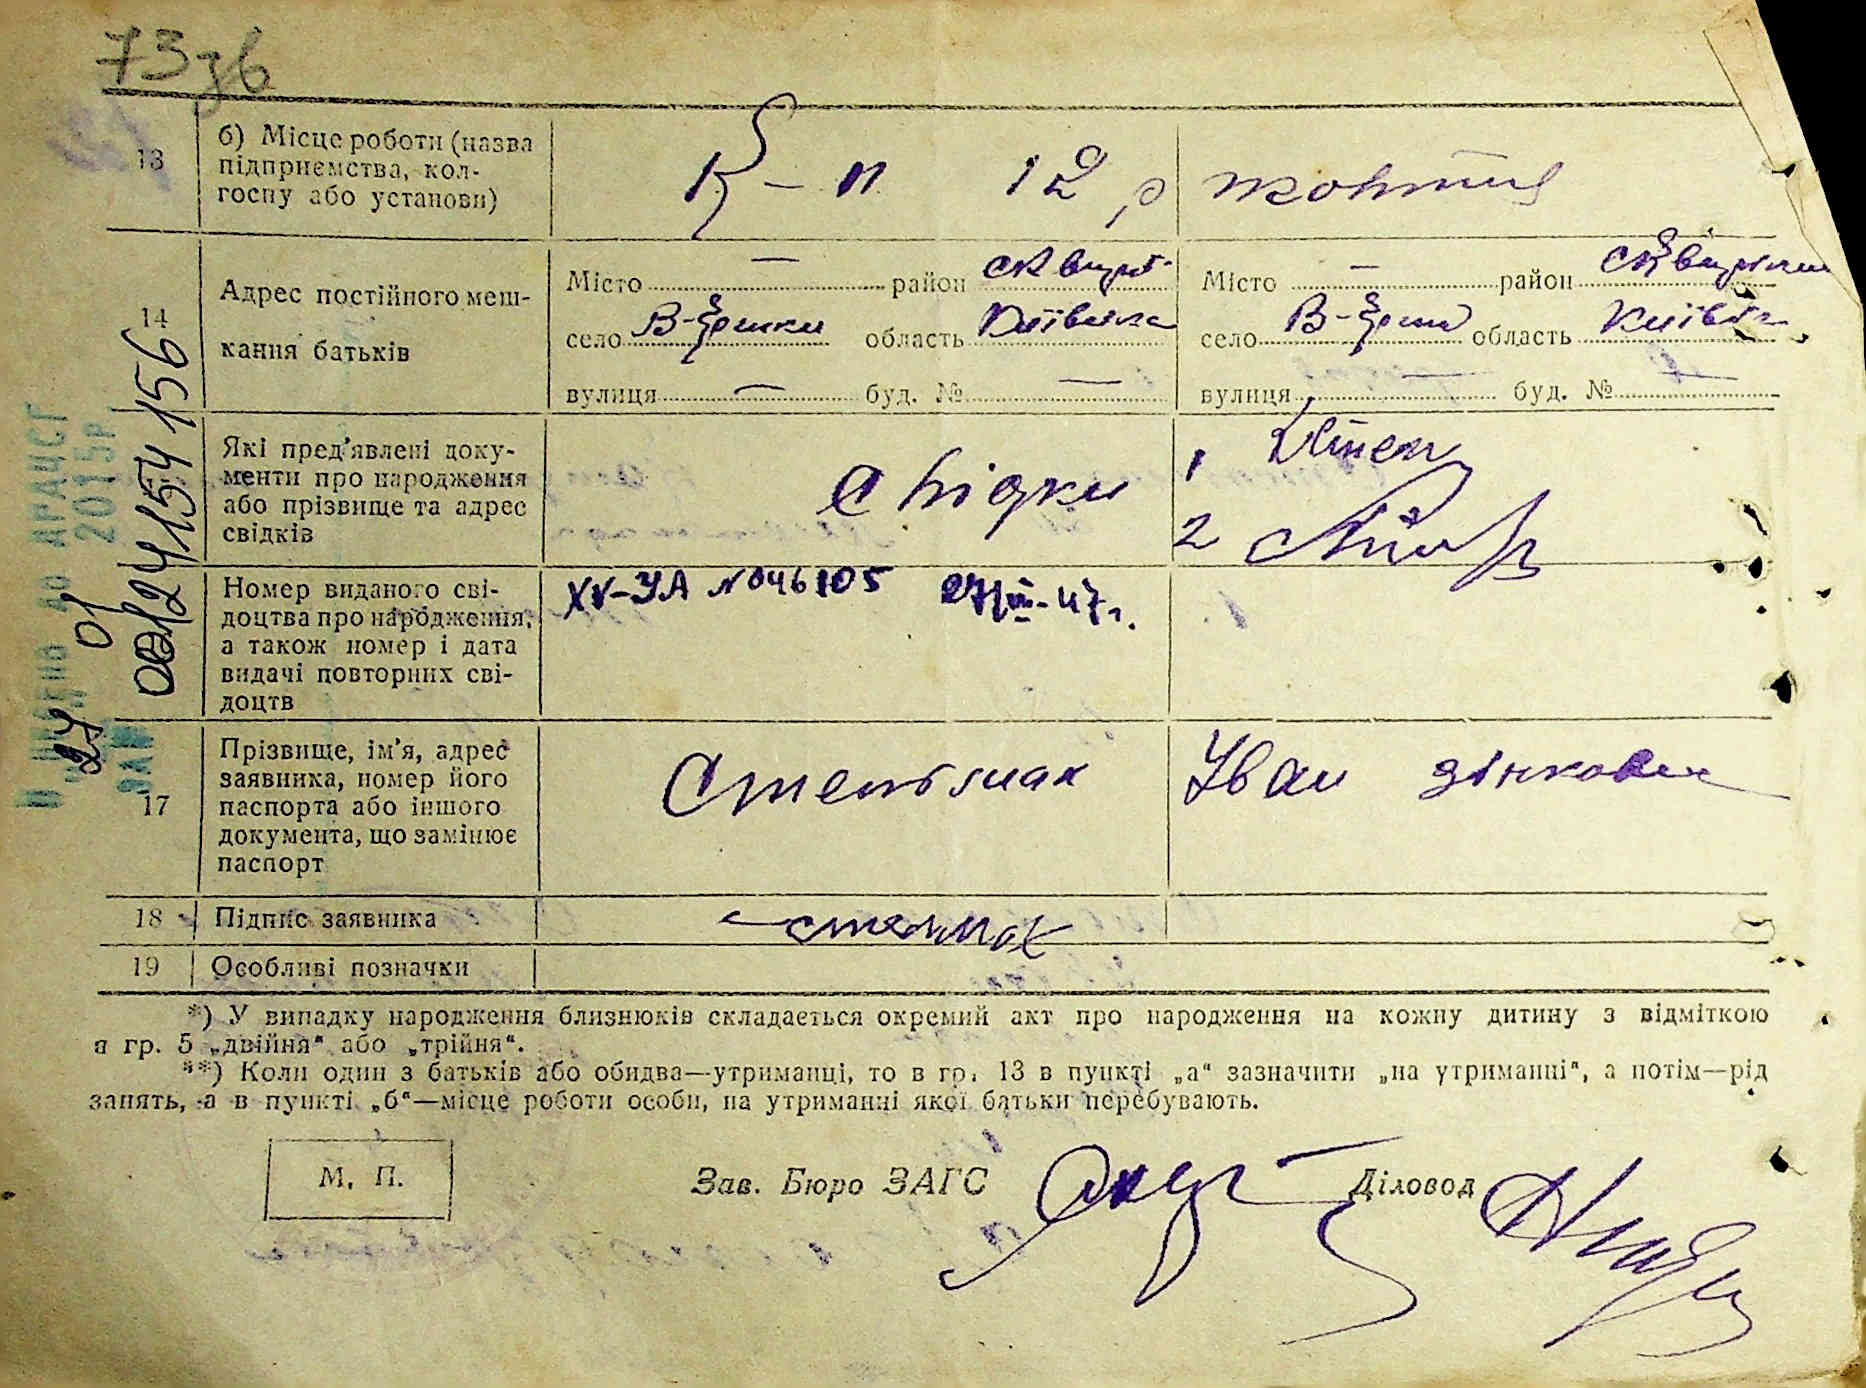 73 зв
13
б) Місце роботи (назва
підприємства, кол-
госпу або установи)
К-п 12 р жовтня
14
Адрес постійного меш-
кання батьків
Місто — район
село область
вулиця — буд. № —
Місто — район
село область
вулиця — буд. № —
Які пред'явлені доку-
менти про народження
або прізвище та адрес
свідків
свідки
1
2
Номер виданого сві-
доцтва про народження,
а також номер і дата
видачі повторних сві-
доцтв
XV-УА №046105 27/VIII-47р.
17
Прізвище, ім'я, адрес
заявника, номер його
паспорта або іншого
документа, що замінює
паспорт
Стельмах Іван Зінкович
18
Підпис заявника
Стельмах
19
Особливі позначки
*) У випадку народження близнюків складається окремий акт про народження на кожну дитину з відміткою
в гр. 5 „двійня" або „трійня".
**) Коли один з батьків або обидва—утриманці, то в гр. 13 в пункті „а" зазначити „на утриманні", а потім—рід
занять, а в пункті „б"—місце роботи особи, на утриманні якої батьки перебувають.
М. П.
Зав. Бюро ЗАГС
Діловод
ДРАЦСГ
2015р
00124154156
27 01